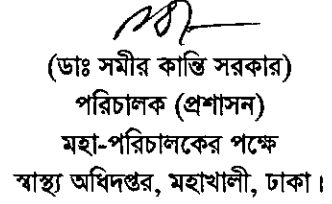 (ডাঃ সমীর কান্তি সরকার)
পরিচালক (প্রশাসন)
মহা-পরিচালকের পক্ষে
স্বাস্থ্য অধিদপ্তর, মহাখালী, ঢাকা।